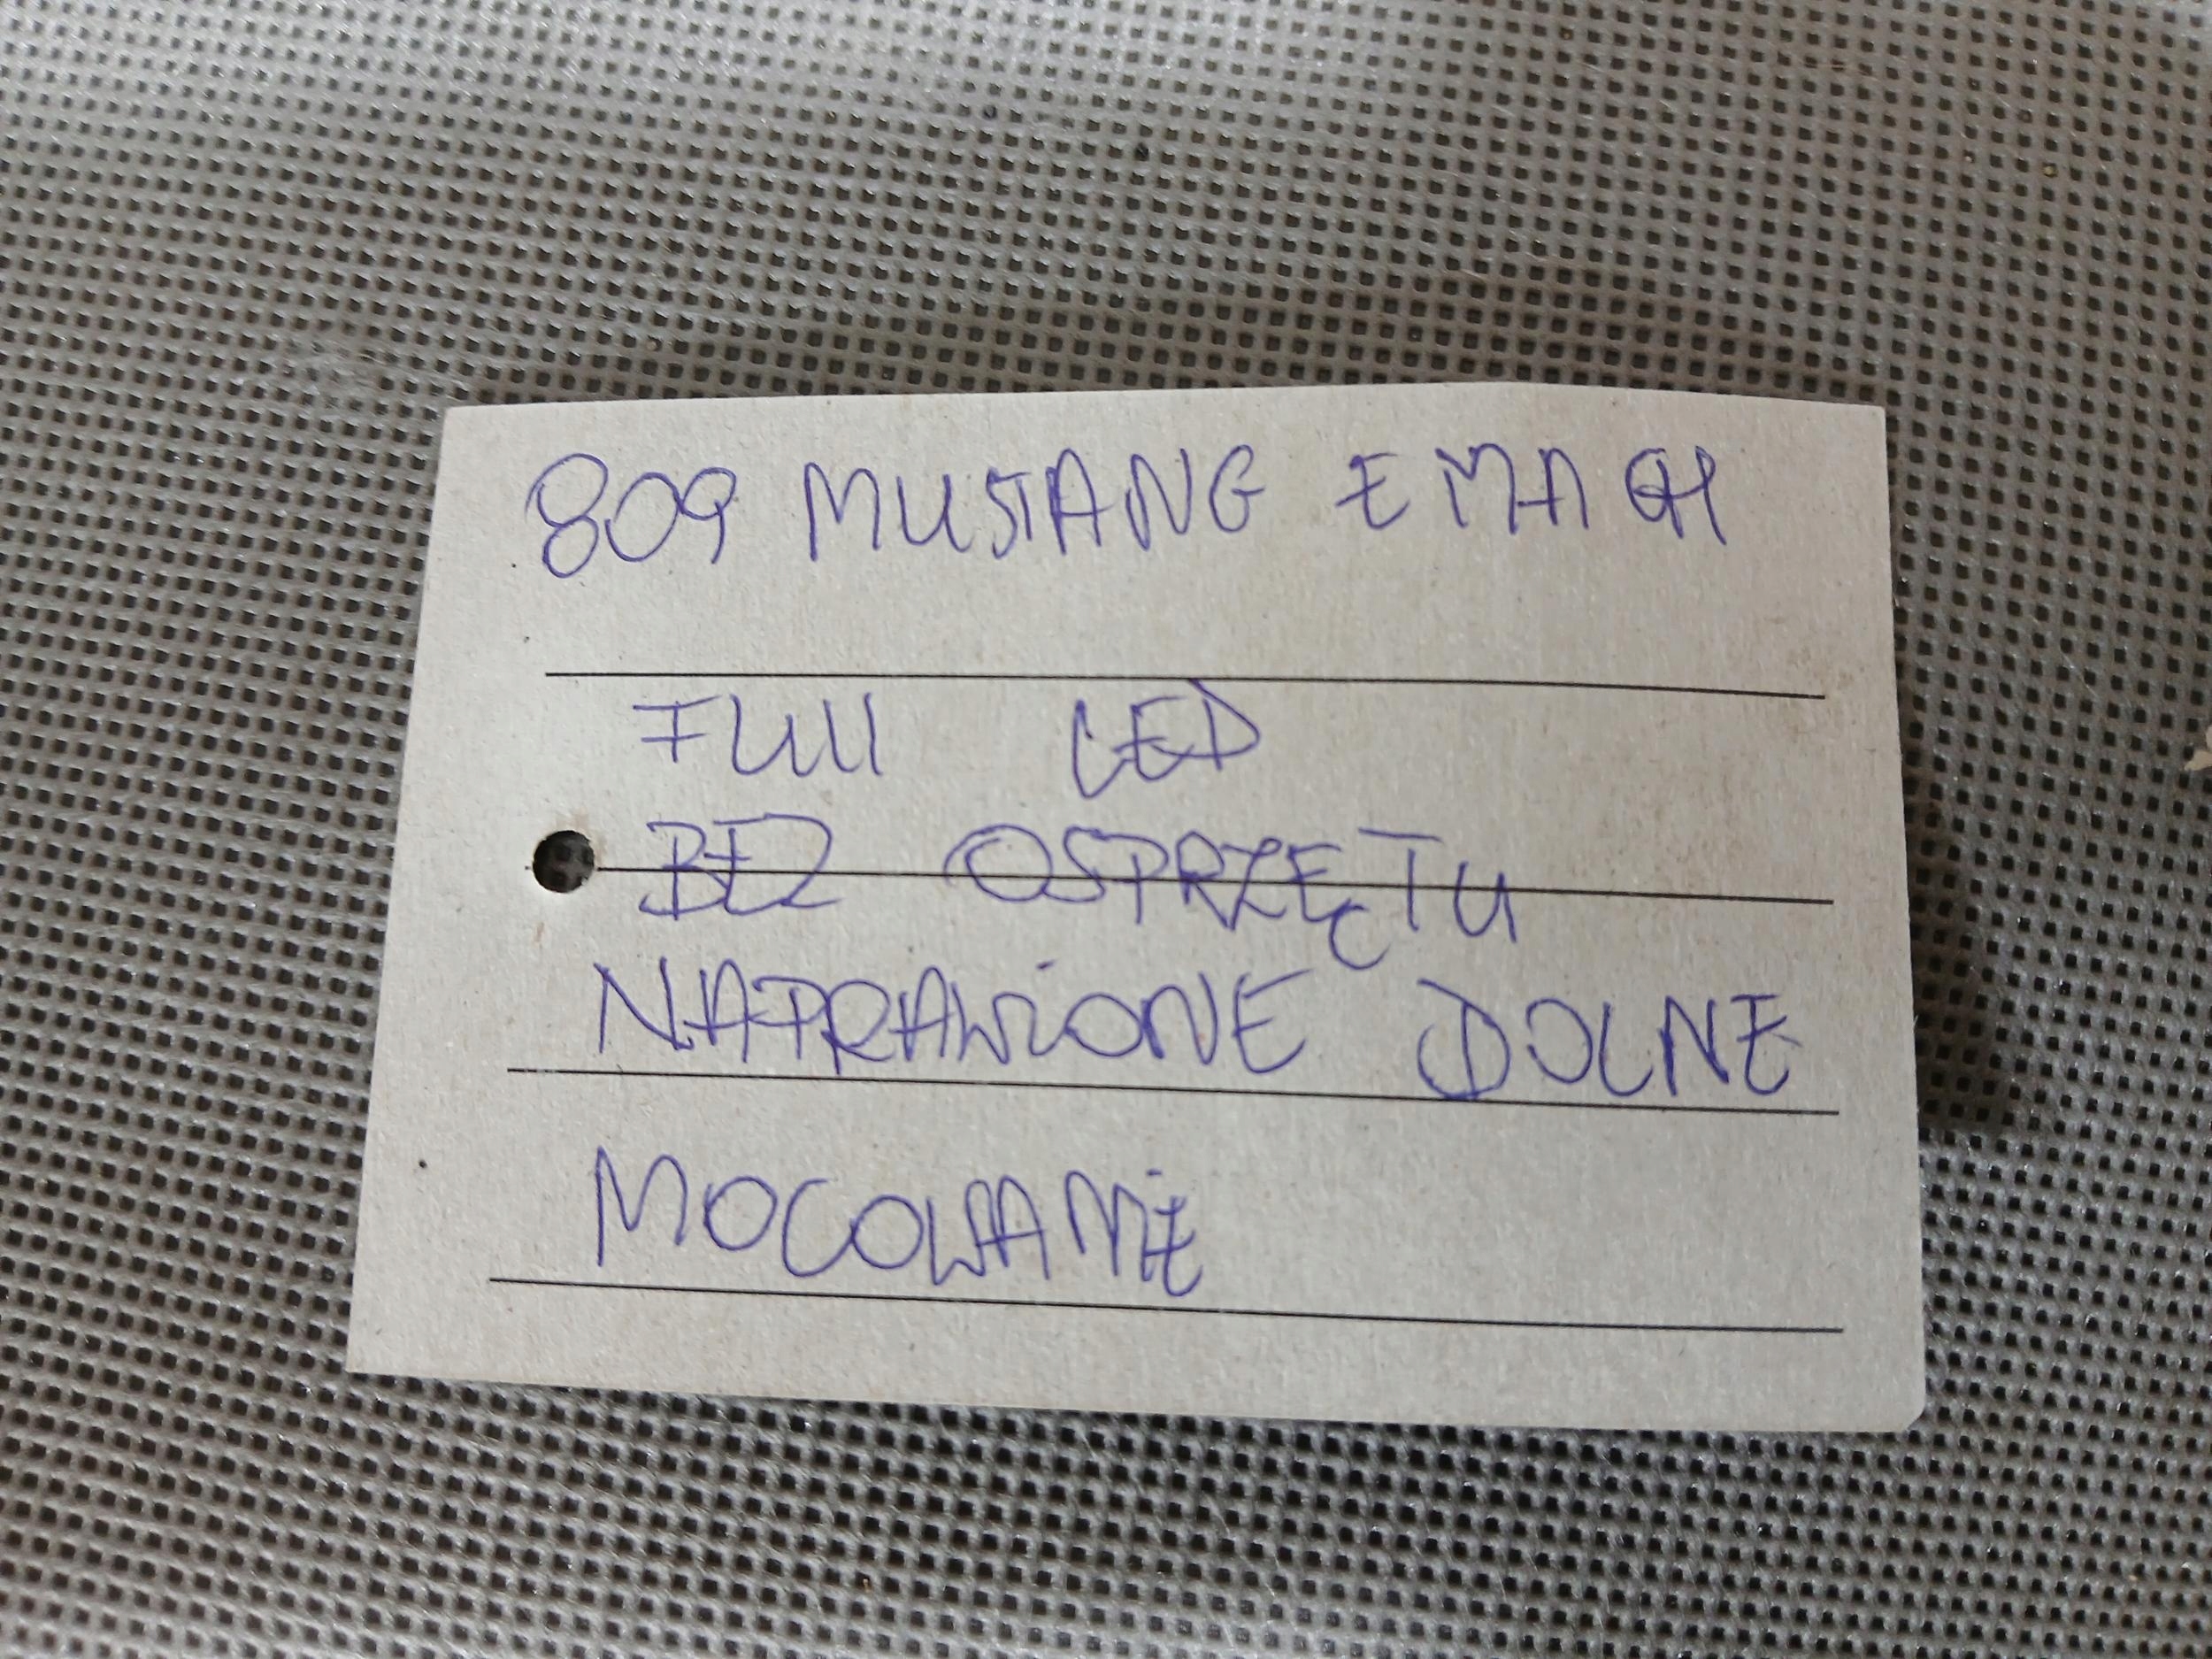 809 MUSTANG E MACH
FULL LED
BEZ OSPRZĘTU
NAPRAWIONE DOLNE
MOCOWANIE